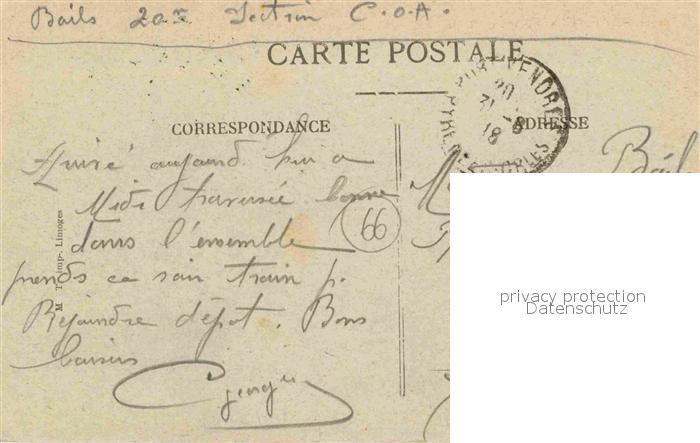 Bails 20me Section C.O.A.
CARTE POSTALE
PORT-VENDRES
20
31-8
18
CORRESPONDANCE
ADRESSE
Arrivé aujourd hui a
Midi traversée bonne
dans l'ensemble
prends ce soir train p.
Rejoindre dépôt. Bons
baisers
Georges
66
Bails
M T Imp. Limoges
privacy protection
Datenschutz